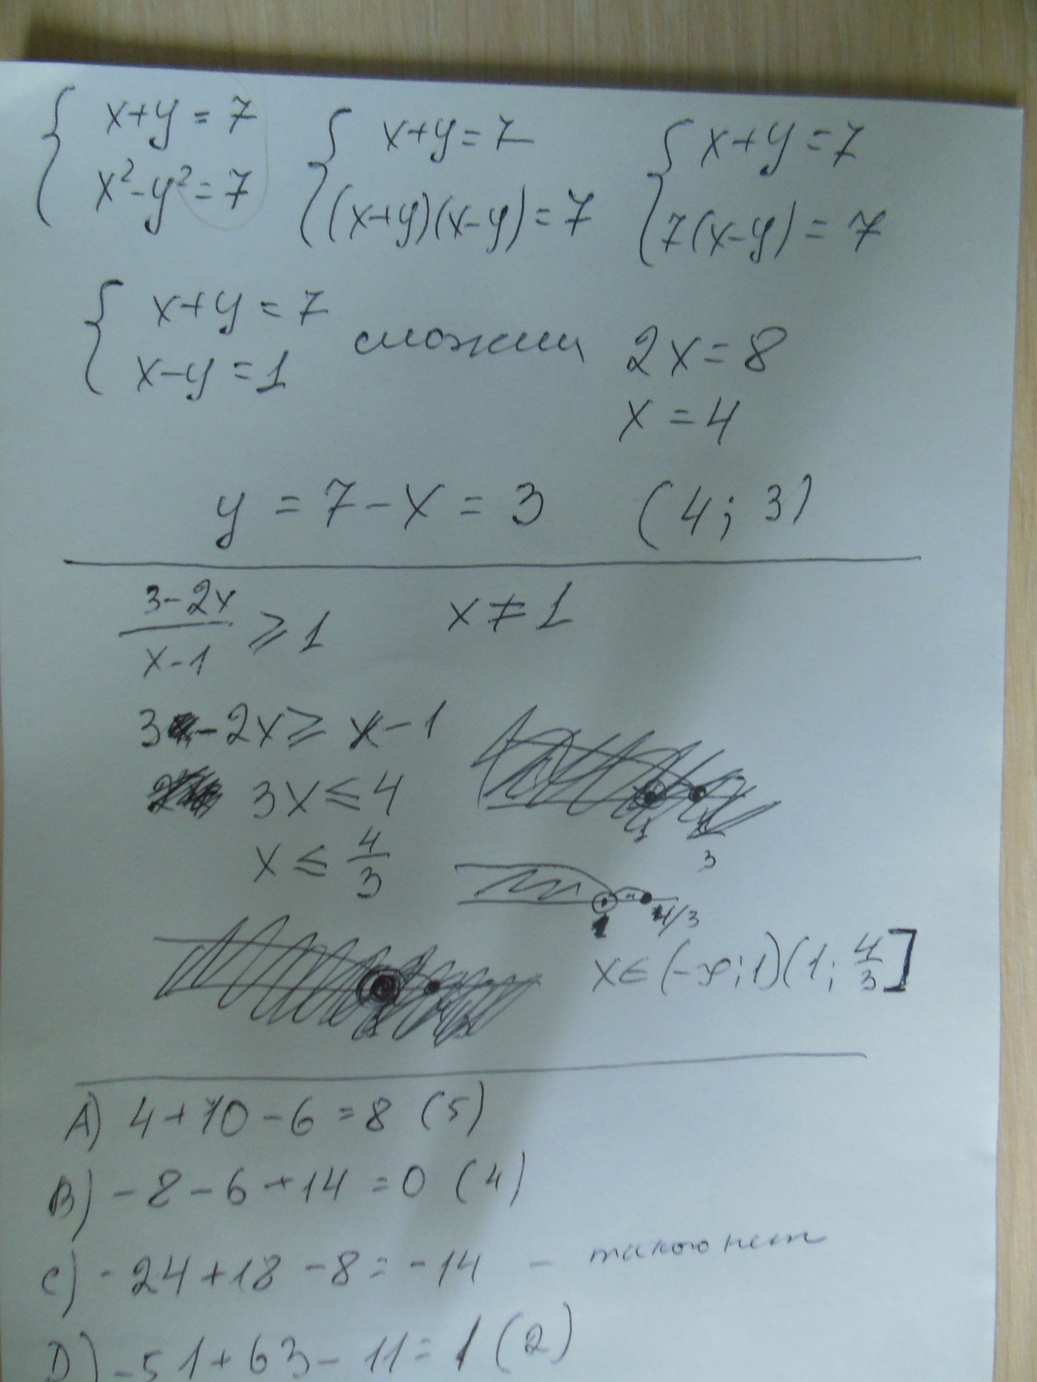 { x+y=7 { x+y=7 { x+y=7
x²-y²=7 (x+y)(x-y)=7 7(x-y)=7
{ x+y=7
x-y=1 сложим 2x=8
x=4
y=7-x=3 (4; 3)
3-2x/x-1 ≥ 1 x≠1
3-2x≥x-1
3x≤4
x≤4/3
1 4/3
x∈(-∞;1)(1; 4/3]
A) 4+10-6=8 (5)
B) -8-6+14=0 (4)
C) -24+18-8=-14 - такого нет
D) -51+63-11=1 (2)